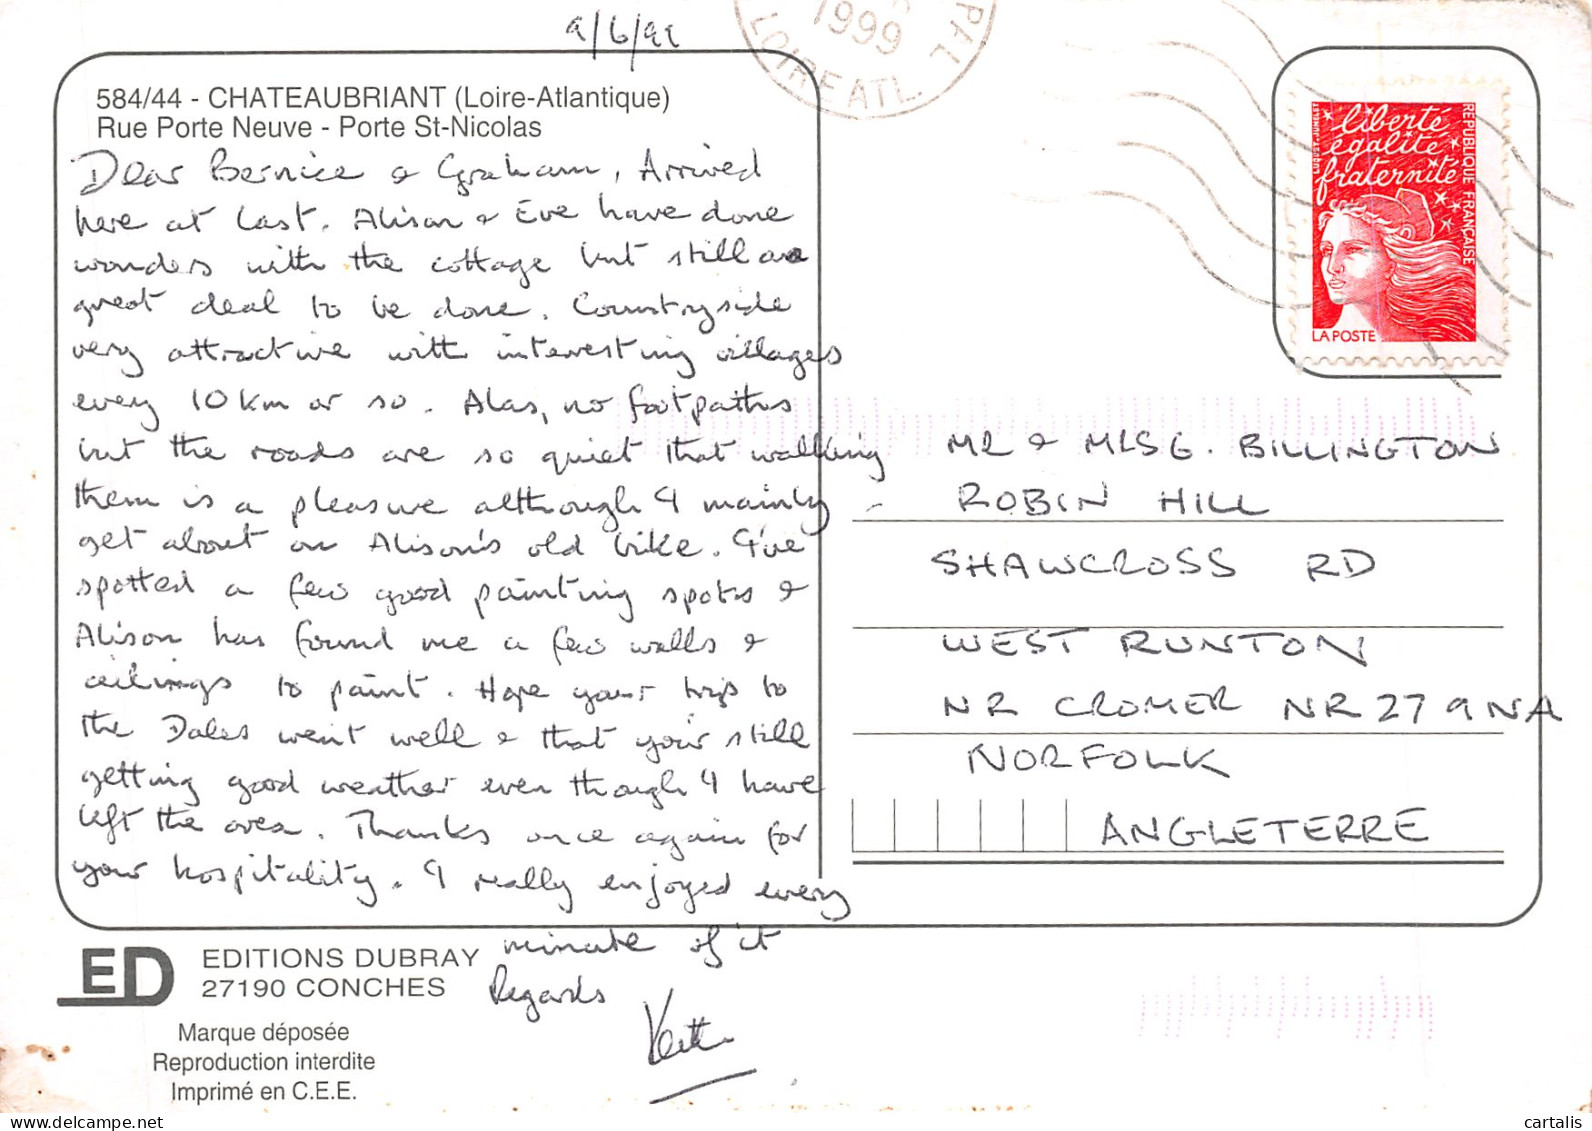 9/6/99
584/44 - CHATEAUBRIANT (Loire-Atlantique)
Rue Porte Neuve - Porte St-Nicolas
Dear Bernice & Graham, Arrived
here at last. Alison & Eve have done
wonders with the cottage but still a
great deal to be done. Countryside
very attractive with interesting villages
every 10 km or so. Alas, no footpaths
but the roads are so quiet that walking
them is a pleasure although I mainly
get about on Alison's old bike. I've
spotted a few good painting spots &
Alison has found me a few walls &
ceilings to paint. Hope your trip to
the Dales went well & that your still
getting good weather even though I have
left the area. Thanks once again for
your hospitality. I really enjoyed every
minute of it
Regards
Keith
ED
EDITIONS DUBRAY
27190 CONCHES
Marque déposée
Reproduction interdite
Imprimé en C.E.E.
1999
LOIRE ATL.
liberté
égalité
fraternité
REPUBLIQUE FRANÇAISE
LA POSTE
MR & MRS G. BILLINGTON
ROBIN HILL
SHAWCROSS RD
WEST RUNTON
NR CROMER NR27 9NA
NORFOLK
ANGLETERRE
cartalis